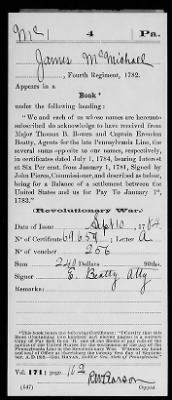 Mc 4 Pa.
James McMichael
, Fourth Regiment, 1782.
Appears in a
Book*
under the following heading:
"We and each of us whose names are hereunto
subscribed do acknowledge to have received from
Major Thomas B. Bowen and Captain Erkuries
Beatty, Agents for the Pennsylvania Line, the
several sums opposite to our names, respectively,
in certificates dated July 1, 1784, bearing Interest
at Six Per cent. from January 1, 1781, Signed by
John Pierce, Commissioner, and described as below,
being for a Balance of a settlement between the
United States and us for Pay To January 1st,
1782."
Revolutionary War.
Date of Issue Sept 10, 1784.
N° of Certificate 69659; Letter A
N° of voucher 256
Sum 240 Dollars 90ths.
Signer E. Beatty Atty
Remarks:
Vol. 171; page 162
(547) Copyist.